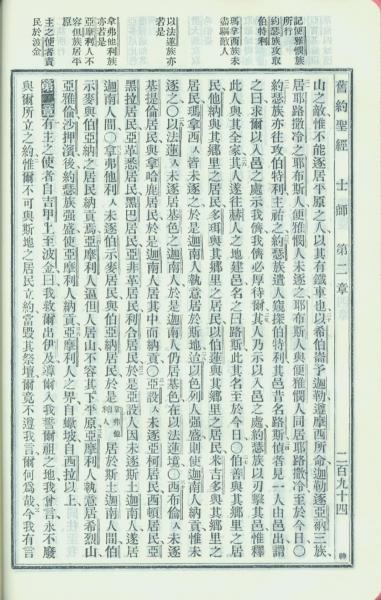 舊約聖經 士師 第二章 二百九十四
記便雅憫族
所行
約瑟族攻取
伯特利
瑪拿西族未
盡驅敵人
以法蓮族亦
若是
拿弗他利族
亦若是
亞摩利人不
容但族居平
原
主之使者責
民於波金
山之敵惟不能逐居平原之人以其有鐵車也以希伯崙予迦勒遵摩西所命迦勒逐亞衲三族
居耶路撒冷之耶布斯人便雅憫人未逐之耶布斯人與便雅憫人同居耶路撒冷至於今日〇
約瑟族亦往攻伯特利主祐之約瑟族遣人窺探伯特利其邑昔名路斯偵者見一人由邑出謂
之曰求爾以入邑之處示我儕我儕必厚待爾其人乃示以入邑之處約瑟族以刃擊其邑惟釋
此人與其全家其人遂往赫人之地建邑名之曰路斯此其名至於今日〇伯善與其鄉里之居
民他納與其鄉里之居民多珥與其鄉里之居民以伯蓮與其鄉里之居民米吉多與其鄉里之
居民瑪拿西人皆未逐之於是迦南人執意居於斯地迨以色列人強盛則使迦南人納貢惟未
逐之〇以法蓮人未逐居基色之迦南人於是迦南人仍居基色在以法蓮境〇西布倫人未逐
基提倫居民與拿哈鹿居民於是迦南人居其中而納貢〇亞設人未逐亞柯居民西頓居民亞
黑拉居民亞革悉居民黑巴居民亞非革居民利合居民於是亞設人因未逐斯土迦南人遂居
迦南人間〇拿弗他利人未逐伯示麥居民與伯亞納居民於是拿弗他利人居於斯土迦南人間伯
示麥與伯亞納之居民納貢焉亞摩利人逼但人居山不容其下平原亞摩利人執意居希烈山
亞雅倫沙押濱後約瑟族強盛使亞摩利人納貢亞摩利人之界自蠍坡自西拉以上
第二章有主之使者自吉甲上至波金曰我救爾出伊及導爾入我誓爾祖之地我曾言永不廢
與爾所立之約惟爾不可與斯地之居民立約當毀其祭壇爾竟不遵我言爾何爲哉今我有言